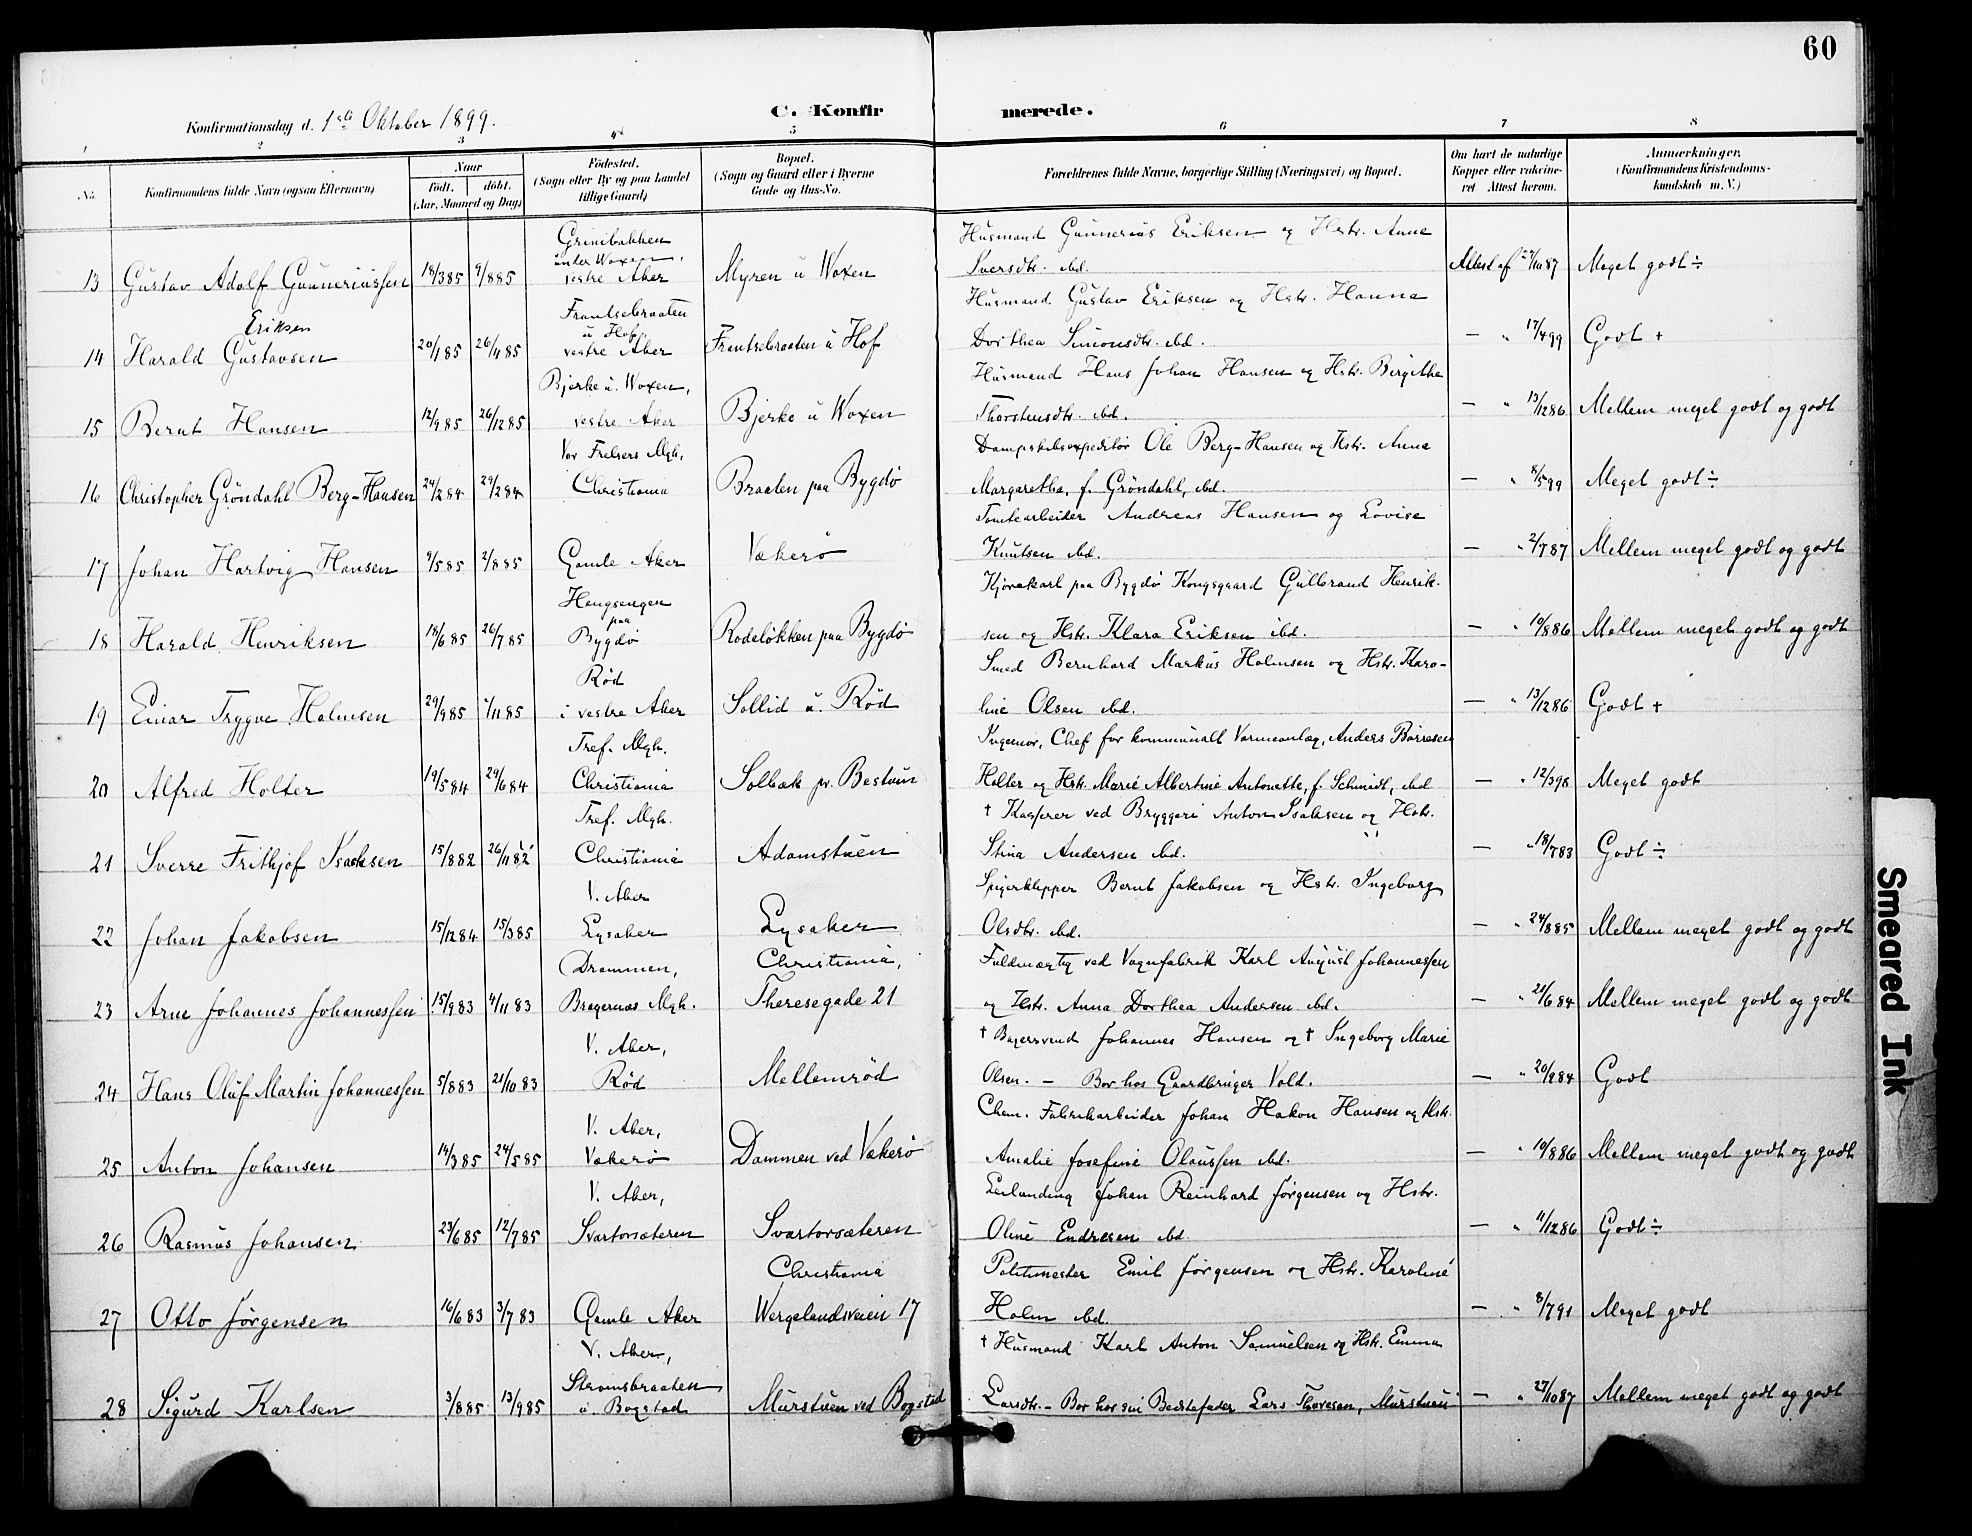 60
Konfirmationsdag d. 1ste Oktober 1899.
C. Konfirmerede.
1 2 3 4 5 6 7 8
No.
Konfirmandens fulde Navn (ogsaa Efternavn)
Naar
født. døbt.
(Aar, Maaned og Dag)
Fødested.
(Sogn eller By og paa Landet
tillige Gaard)
Bopæl.
(Sogn og Gaard eller i Byerne
Gade og Hus-No.
Forældrenes fulde Navne, borgerlige Stilling (Næringsvei) og Bopæl.
Om havt de naturlige
Kopper eller vakcine-
ret Attest herom.
Anmærkninger.
(Konfirmandens Kristendoms-
kundskab m. V.)
Grinibakken Husmand Gunnerius Eriksen og Hstr. Anne
under Woxen,
13 Gustav Adolf Gunneriussen 18/3 85 9/8 85 vestre Aker Myren u Woxen Sversdtr. ibd. Attest af 27/10 87 Meget godt ÷
Frantsebraaten Husmand Gustav Eriksen og Hstr. Hanna
Eriksen u Hof,
14 Harald Gustavsen 20/1 85 26/4 85 vestre Aker Frantsebraaten u Hof Dorthea Simonsdtr. ibd. — " 17/4 99 Godt +
Bjerke u. Woxen, Husmand Hans Johan Hansen og Hstr. Birgithe
15 Bernt Hansen 12/9 85 26/12 85 vestre Aker Bjerke u Woxen Thorstensdtr. ibd. — " 13/12 86 Mellem meget godt og godt
Vor Frelsers Mgh, Dampskibsexpeditør Ole Berg-Hansen og Hstr. Anna
16 Christopher Gröndahl Berg-Hansen 24/2 84 29/2 84 Christiania Braaten paa Bygdö Margaretha, f. Gröndahl, ibd. — " 8/5 99 Meget godt ÷
Tomtearbeider Andreas Hansen og Lovise
17 Johan Hartvig Hansen 9/5 85 2/8 85 Gamle Aker Vækerö Knutsen ibd. — " 2/7 87 Mellem meget godt og godt
Hengsengen Kjørekarl paa Bygdö Kongsgaard Gulbrand Henrik-
paa
18 Harald Henriksen 18/6 85 26/7 85 Bygdö Rodelökken paa Bygdö sen og Hstr. Klara Eriksen ibd. — " 19/8 86 Mellem meget godt og godt
Röd Smed Bernhard Markus Holmsen og Hstr. Karo-
19 Einar Trygve Holmsen 29/9 85 1/11 85 i vestre Aker Sollid u. Röd line Olsen ibd. — " 13/12 86 Godt +
Tref. Mgh. Ingeniör, Chef for kommunalt Varmeanlæg, Anders Börresen
20 Alfred Holter 19/5 84 29/6 84 Christiania Solbæk pr. Bestum Holter og Hstr. Marie Albertine Antonette, f. Schmidt, ibd — " 12/3 98 Meget godt
Tref. Mgh. † Kasserer ved Bryggeri Anton Isaksen og Hstr.
21 Sverre Frithjof Isaksen 15/8 82 26/11 82 Christiania Adamstuen Stina Andersen ibd. — " 18/7 83 Godt ÷
V. Aker Spigerklipper Bernt Jakobsen og Hstr. Ingeborg
22 Johan Jakobsen 15/12 84 15/3 85 Lysaker Lysaker Olsdtr. ibd. — " 24/8 85 Mellem meget godt og godt
Drammen, Christiania, Fuldmægtig ved Vognfabrik Karl August Johannessen
23 Arne Johannes Johannessen 15/9 83 4/11 83 Bragernæs Mgh. Theresegade 21 og Hstr. Anna Dorthea Andersen ibd. — " 21/6 84 Mellem meget godt og godt
V. Aker, † Bagersvend Johannes Hansen og † Ingeborg Marie
24 Hans Oluf Martin Johannessen 5/8 83 21/10 83 Röd Mellemröd Olsen. — Bor hos Gaardbruger Vold. — " 20/9 84 Godt
V. Aker, Chem. Fabrikarbeider Johan Hakon Hansen og Hstr.
25 Anton Johansen 14/3 85 24/5 85 Vækerö Dammen ved Vækerö Amalie Josefine Olaussen ibd. — " 19/8 86 Mellem meget godt og godt
V. Aker, Leilænding Johan Reinhard Jörgensen og Hstr.
26 Rasmus Johansen 23/6 85 12/7 85 Svartorsæteren Svartorsæteren Oline Endresen ibd. — " 11/12 86 Godt ÷
Christiania Politimester Emil Jörgensen og Hstr. Karoline
27 Otto Jörgensen 16/6 83 3/7 83 Gamle Aker Wergelandsveien 17 Holm ibd. — " 8/7 91 Meget godt
V. Aker, † Husmand Karl Anton Samuelsen og Hstr. Emma
Strömsbraaten
28 Sigurd Karlsen 3/8 85 13/9 85 u. Bogstad Murstuen ved Bogstad Larsdtr. — Bor hos sin Bedstefader Lars Thoresen, Murstuen — " 27/10 87 Mellem meget godt og godt
Smeared Ink